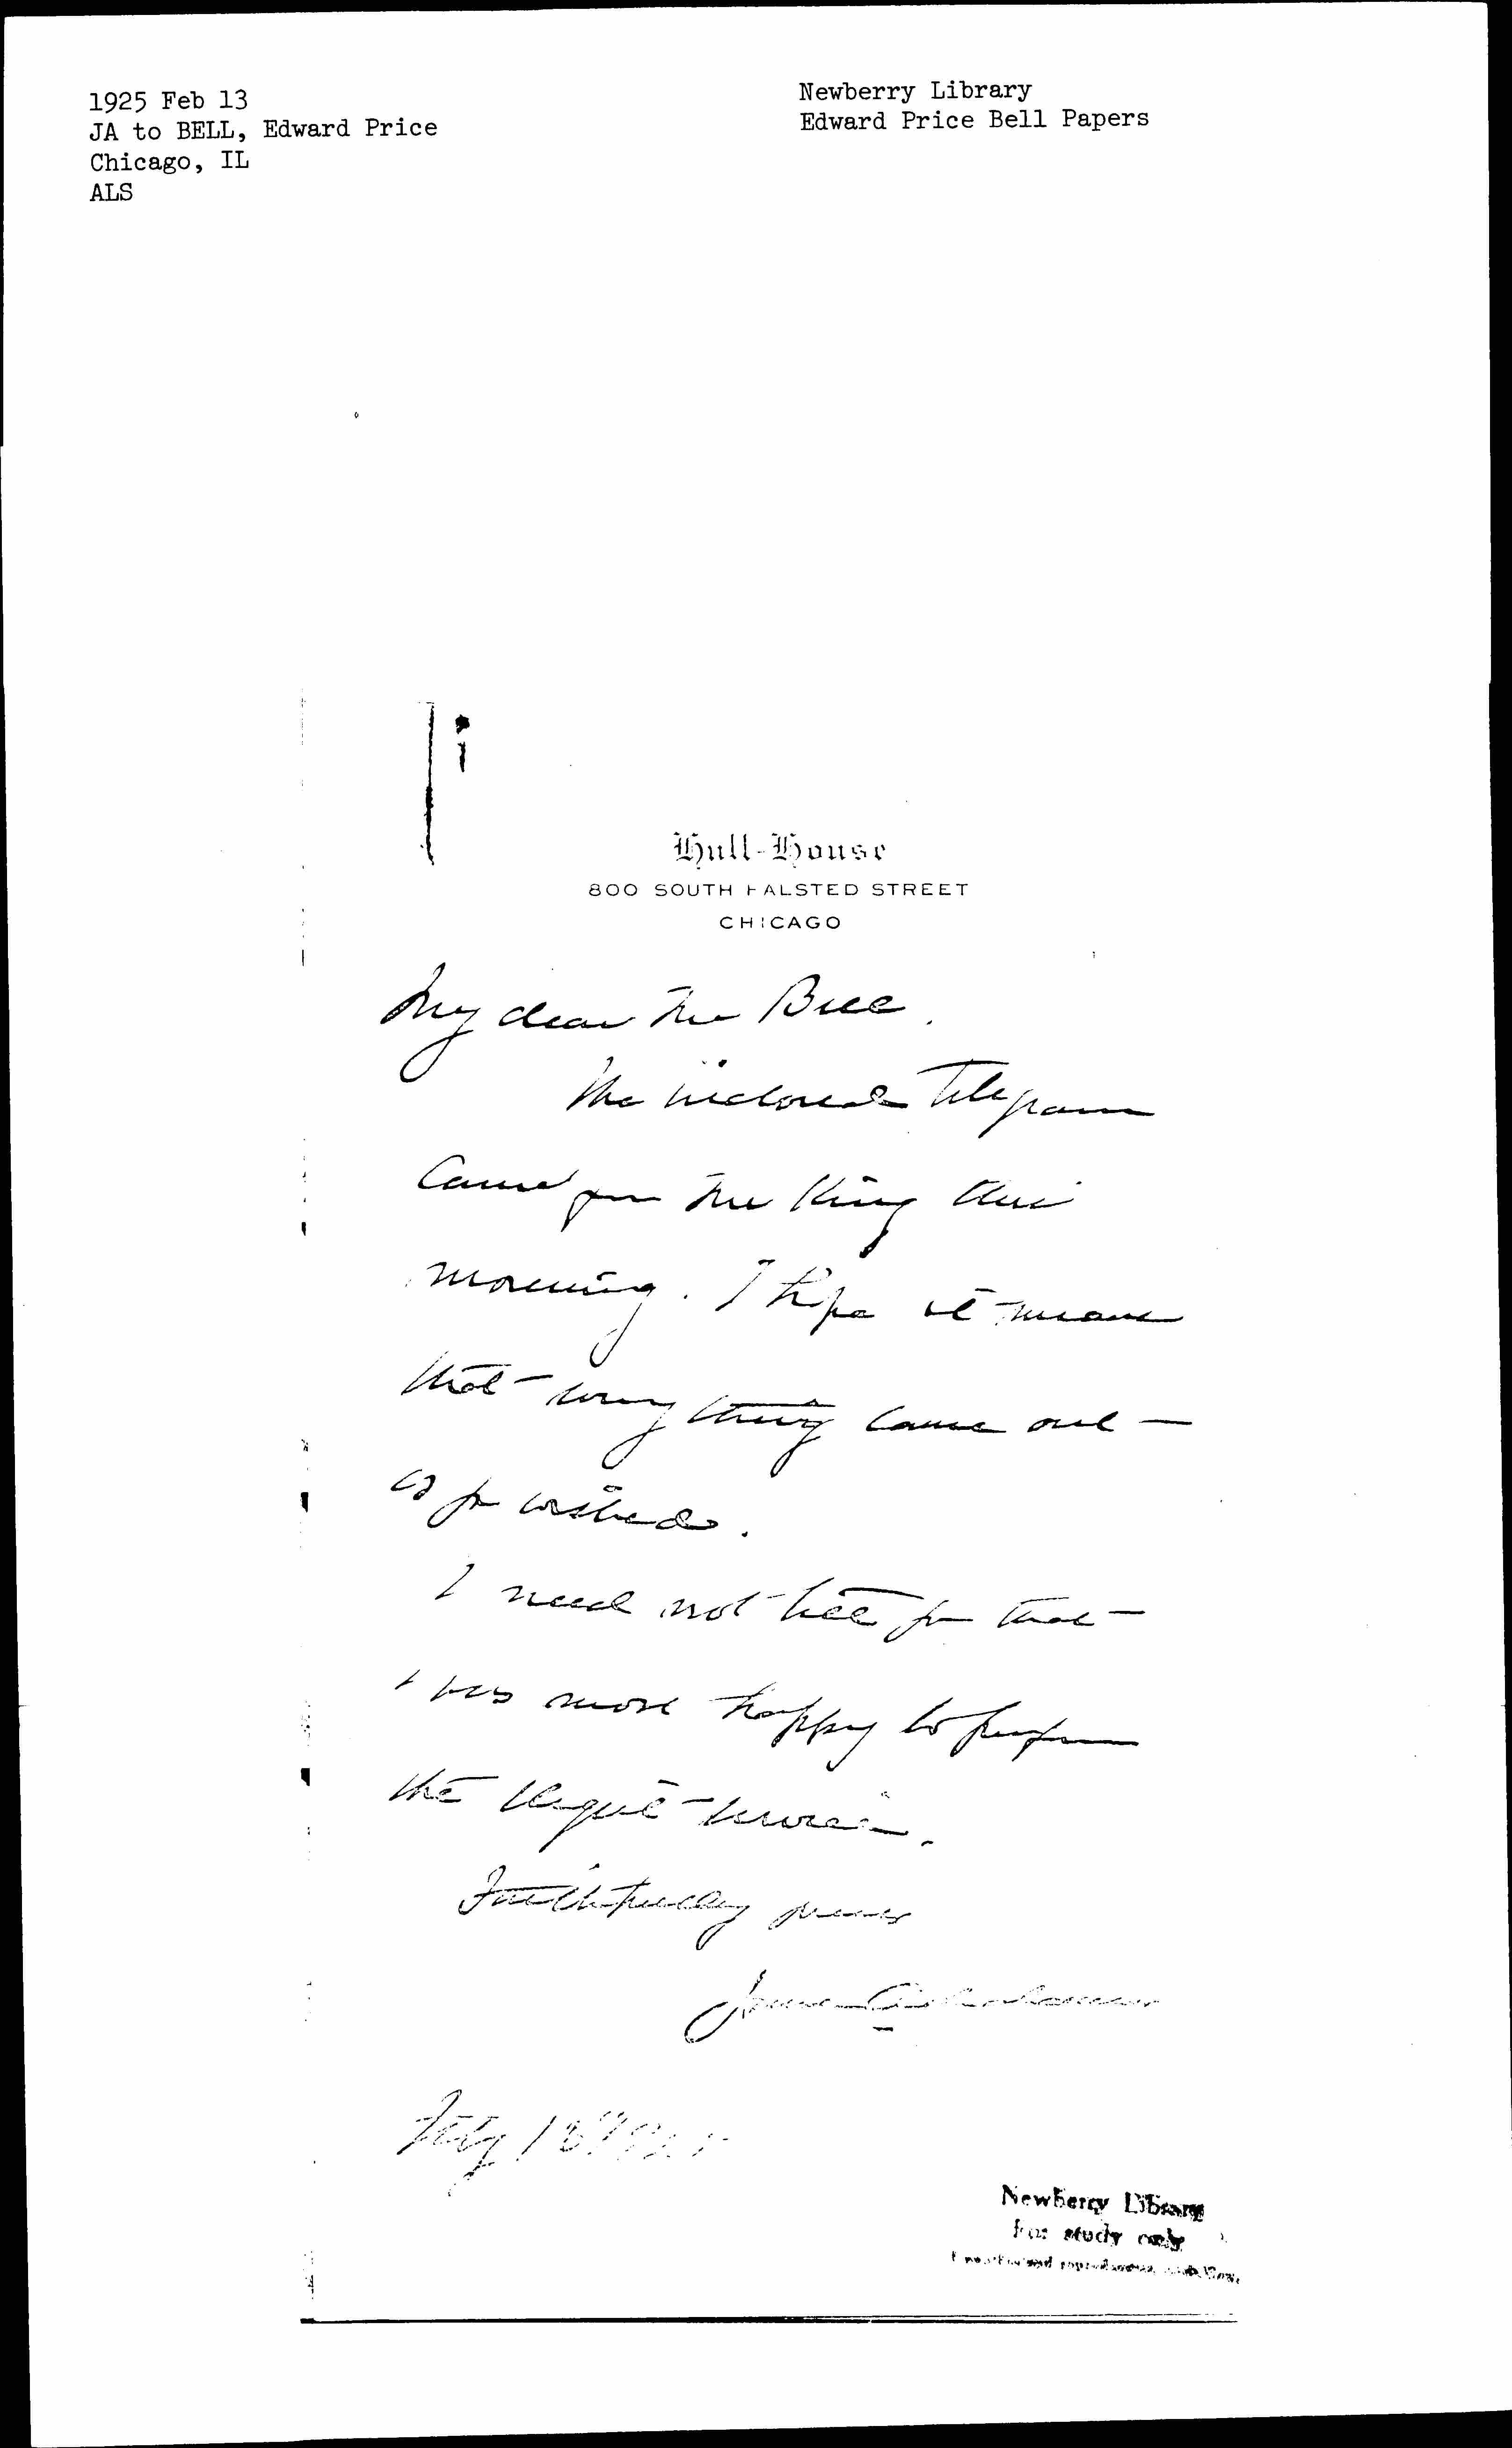 1925 Feb 13
JA to BELL, Edward Price
Chicago, IL
ALS
Newberry Library
Edward Price Bell Papers
Hull-House
800 SOUTH HALSTED STREET
CHICAGO
My dear Mr Bell.
The inclosed telegram
came from Mr King this
morning. I hope it means
that every thing came out
as you wished.
I need not tell you that
I was most happy to perform
the slight service.
Faithfully yours
Jane Addams
Feby 13" 1925
Newberry Library
For study only